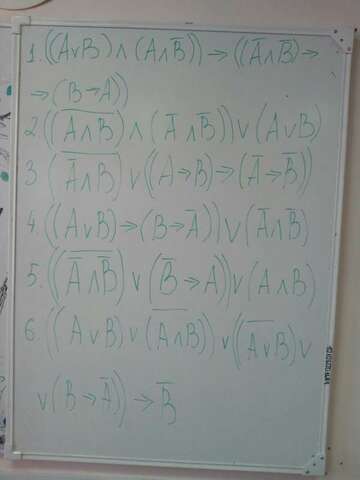 1. ((A∨B) ∧ (A∧B̅)) → ((A̅∧B̅) →
→ (B→A̅))
2. ((A̅∧̅B̅) ∧ (A̅∧B̅)) ∨ (A∨B)
3 (A̅∧̅B̅) ∨ ((A→B) → (A̅→B̅))
4. ((A∨B) → (B→A̅)) ∨ (A̅∧B̅)
5. ((A̅∧̅B̅) ∨ (B̅→A)) ∨ (A∧B)
6. ((A∨B) ∨ (A̅∧̅B̅)) ∨ ((A̅∨̅B̅) ∨
∨ (B→A̅)) → B̅